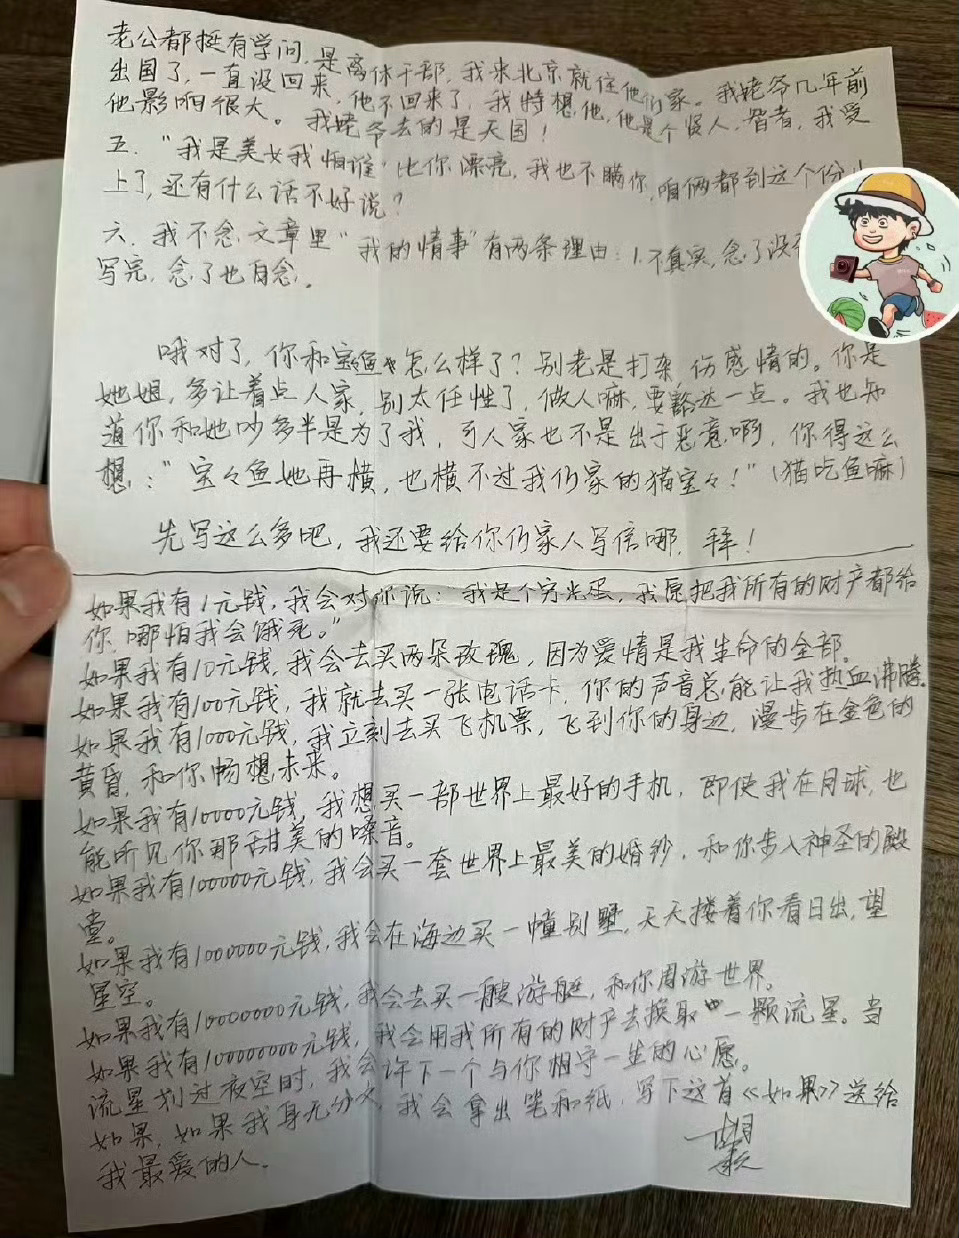 老公都挺有学问,是离休干部,我来北京就住他们家。我姥爷几年前
出国了,一直没回来,他不回来了,我特想他,他是个怪人,智者,我受
他影响很大。我姥爷去的是天国!
五."我是美女我怕谁"比你漂亮,我也不瞒你,咱俩都到这个份儿
上了,还有什么话不好说?
六.我不念文章里"我的情事"有两条理由:1.不真实,念了没
写完,念了也白念.
哦对了,你和宝鱼怎么样了?别老是打架,伤感情的。你是
她姐,多让着点人家,别太任性了,做人嘛,要豁达一点。我也知
道你和她吵多半是为了我,可人家也不是出于恶意啊,你得这么
想:"宝々鱼她再横,也横不过我们家的猫宝々!"(猫吃鱼嘛)
先写这么多吧,我还要给你们家人写信哪,拜!
如果我有1元钱,我会对你说:我是个穷光蛋,我愿把我所有的财产都给
你,哪怕我会饿死。"
如果我有10元钱,我会去买两朵玫瑰,因为爱情是我生命的全部。
如果我有100元钱,我就去买一张电话卡,你的声音总能让我热血沸腾.
如果我有1000元钱,我立刻去买飞机票,飞到你的身边,漫步在金色的
黄昏,和你畅想未来。
如果我有10000元钱,我想买一部世界上最好的手机,即使我在月球,也
能听见你那甜美的嗓音。
如果我有100000元钱,我会买一套世界上最美的婚纱,和你步入神圣的殿
堂。
如果我有1000000元钱,我会在海边买一幢别墅,天天搂着你看日出,望
星空。
如果我有10000000元钱,我会去买一艘游艇,和你周游世界。
如果我有100000000元钱,我会用我所有的财产去换取一颗流星。当
流星划过夜空时,我会许下一个与你相守一生的心愿。
如果,如果我身无分文,我会拿出笔和纸,写下这首《如果》送给
我最爱的人.